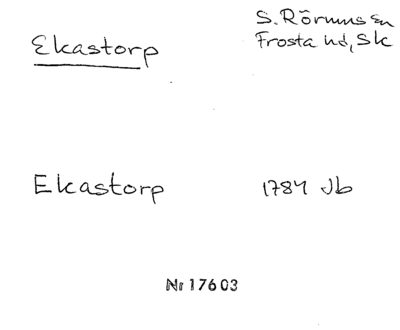 Ekastorp
S. Rörums sn
Frosta hd, Sk
Ekastorp
1784 Jb
Nr 17603